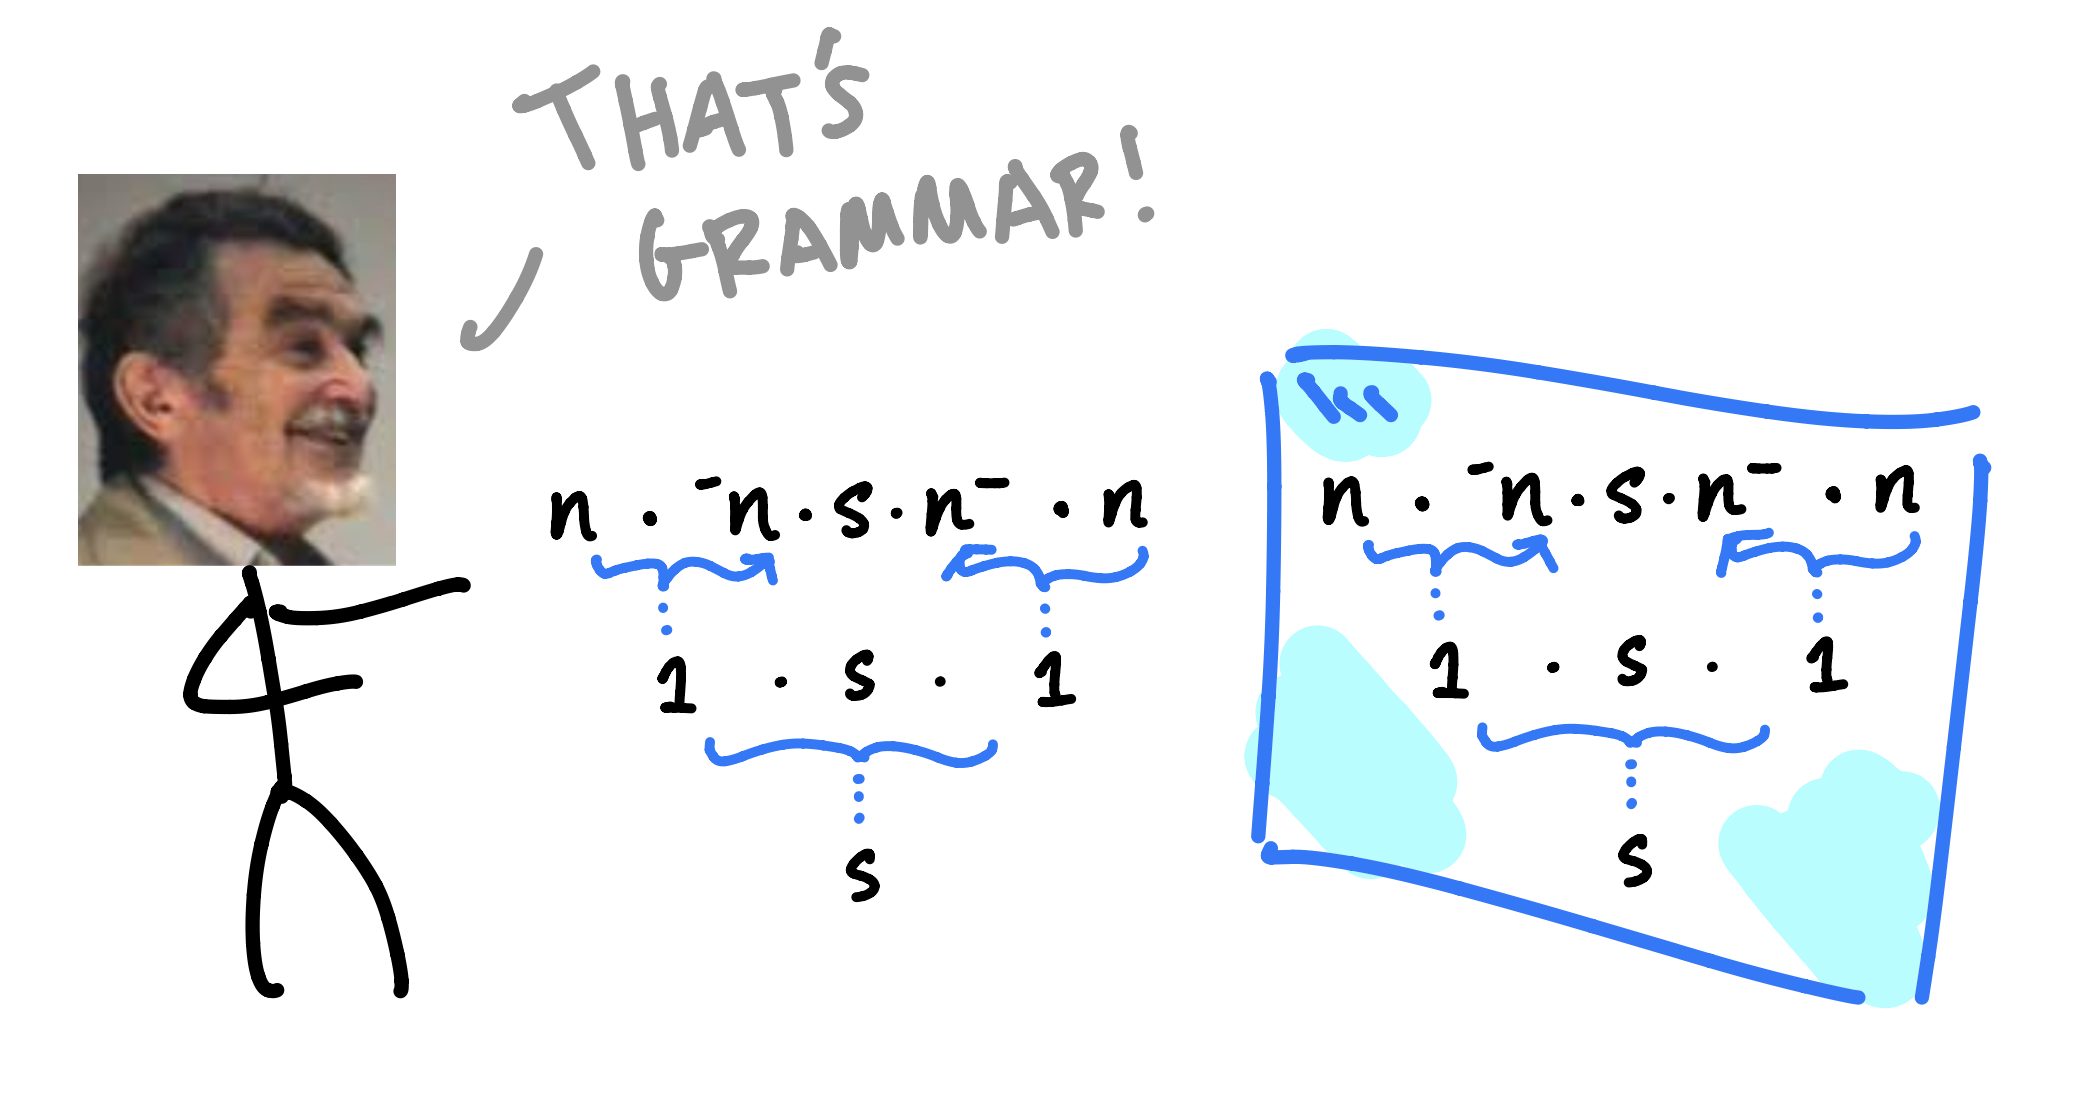 THAT'S
GRAMMAR!
n · ⁻n · s · n⁻ · n
1 · s · 1
s
n · ⁻n · s · n⁻ · n
1 · s · 1
s